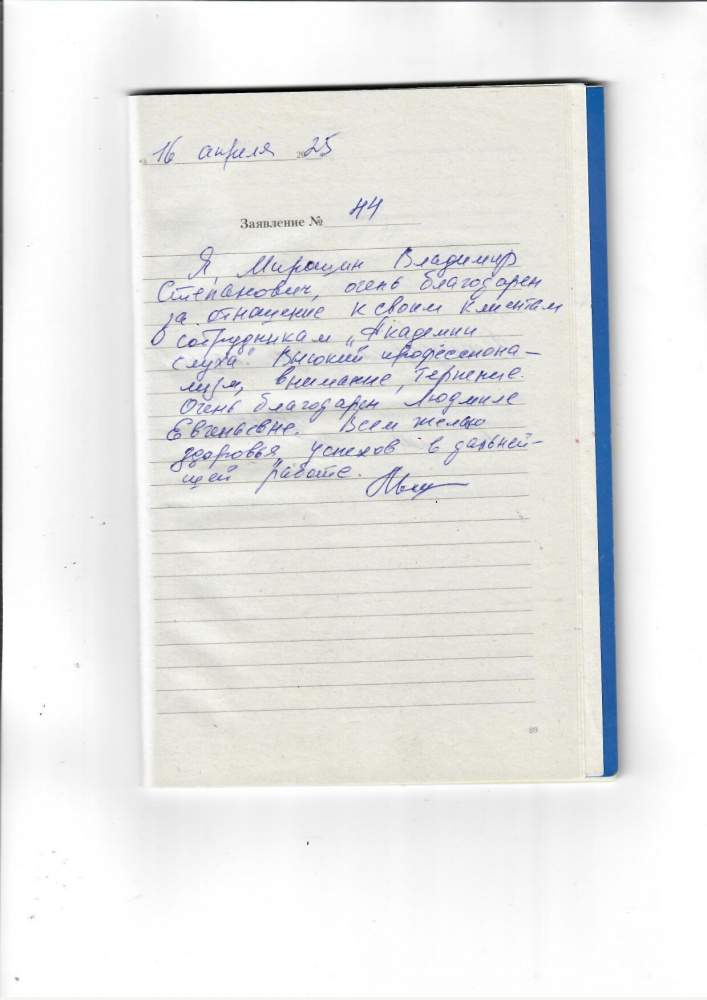 16 апреля 2025
Заявление № 44
Я, Владимир
Степанович, очень благодарен
за отношение к своим клиентам
сотрудникам „Академии
слуха". Высокий профессиона-
лизм, внимание, терпение.
Очень благодарен Людмиле
Евгеньевне. Всем желаю
здоровья, успехов в дальней-
шей работе.
89